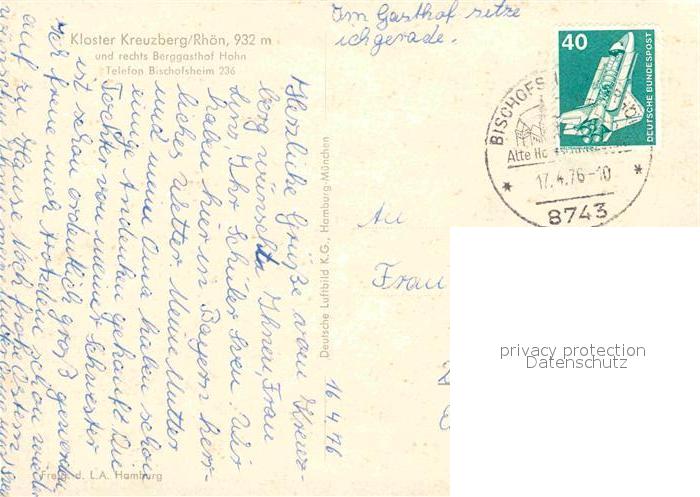 Kloster Kreuzberg/Rhön, 932 m
und rechts Berggasthof Hohn
Telefon Bischofsheim 236
Im Gasthof sitze
ich gerade.
40
DEUTSCHE BUNDESPOST
BISCHOFS
Alte
17.4.76-10
8743
Herzliche Grüße vom Kreuz-
berg wünscht Ihnen, Frau
Ihr Schüler Sven. Wir
haben hier in Bayern herr-
liches Wetter. Meine Mutter
und meine Oma haben schon
Andenken gekauft. Die
Tochter von meiner Schwester
ist schon ordentlich groß geworden
freue mich trotzdem schon wieder
auf zu Hause. Noch frohe Ostern
16.4.76
Deutsche Luftbild K.G., Hamburg-München
An
Frau
Freig. d. L.A. Hamburg
privacy protection
Datenschutz